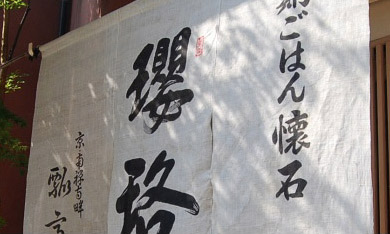 ごはん懐石
瓔珞
京南禅寺畔
瓢